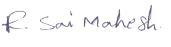 R. Sai Mahesh.